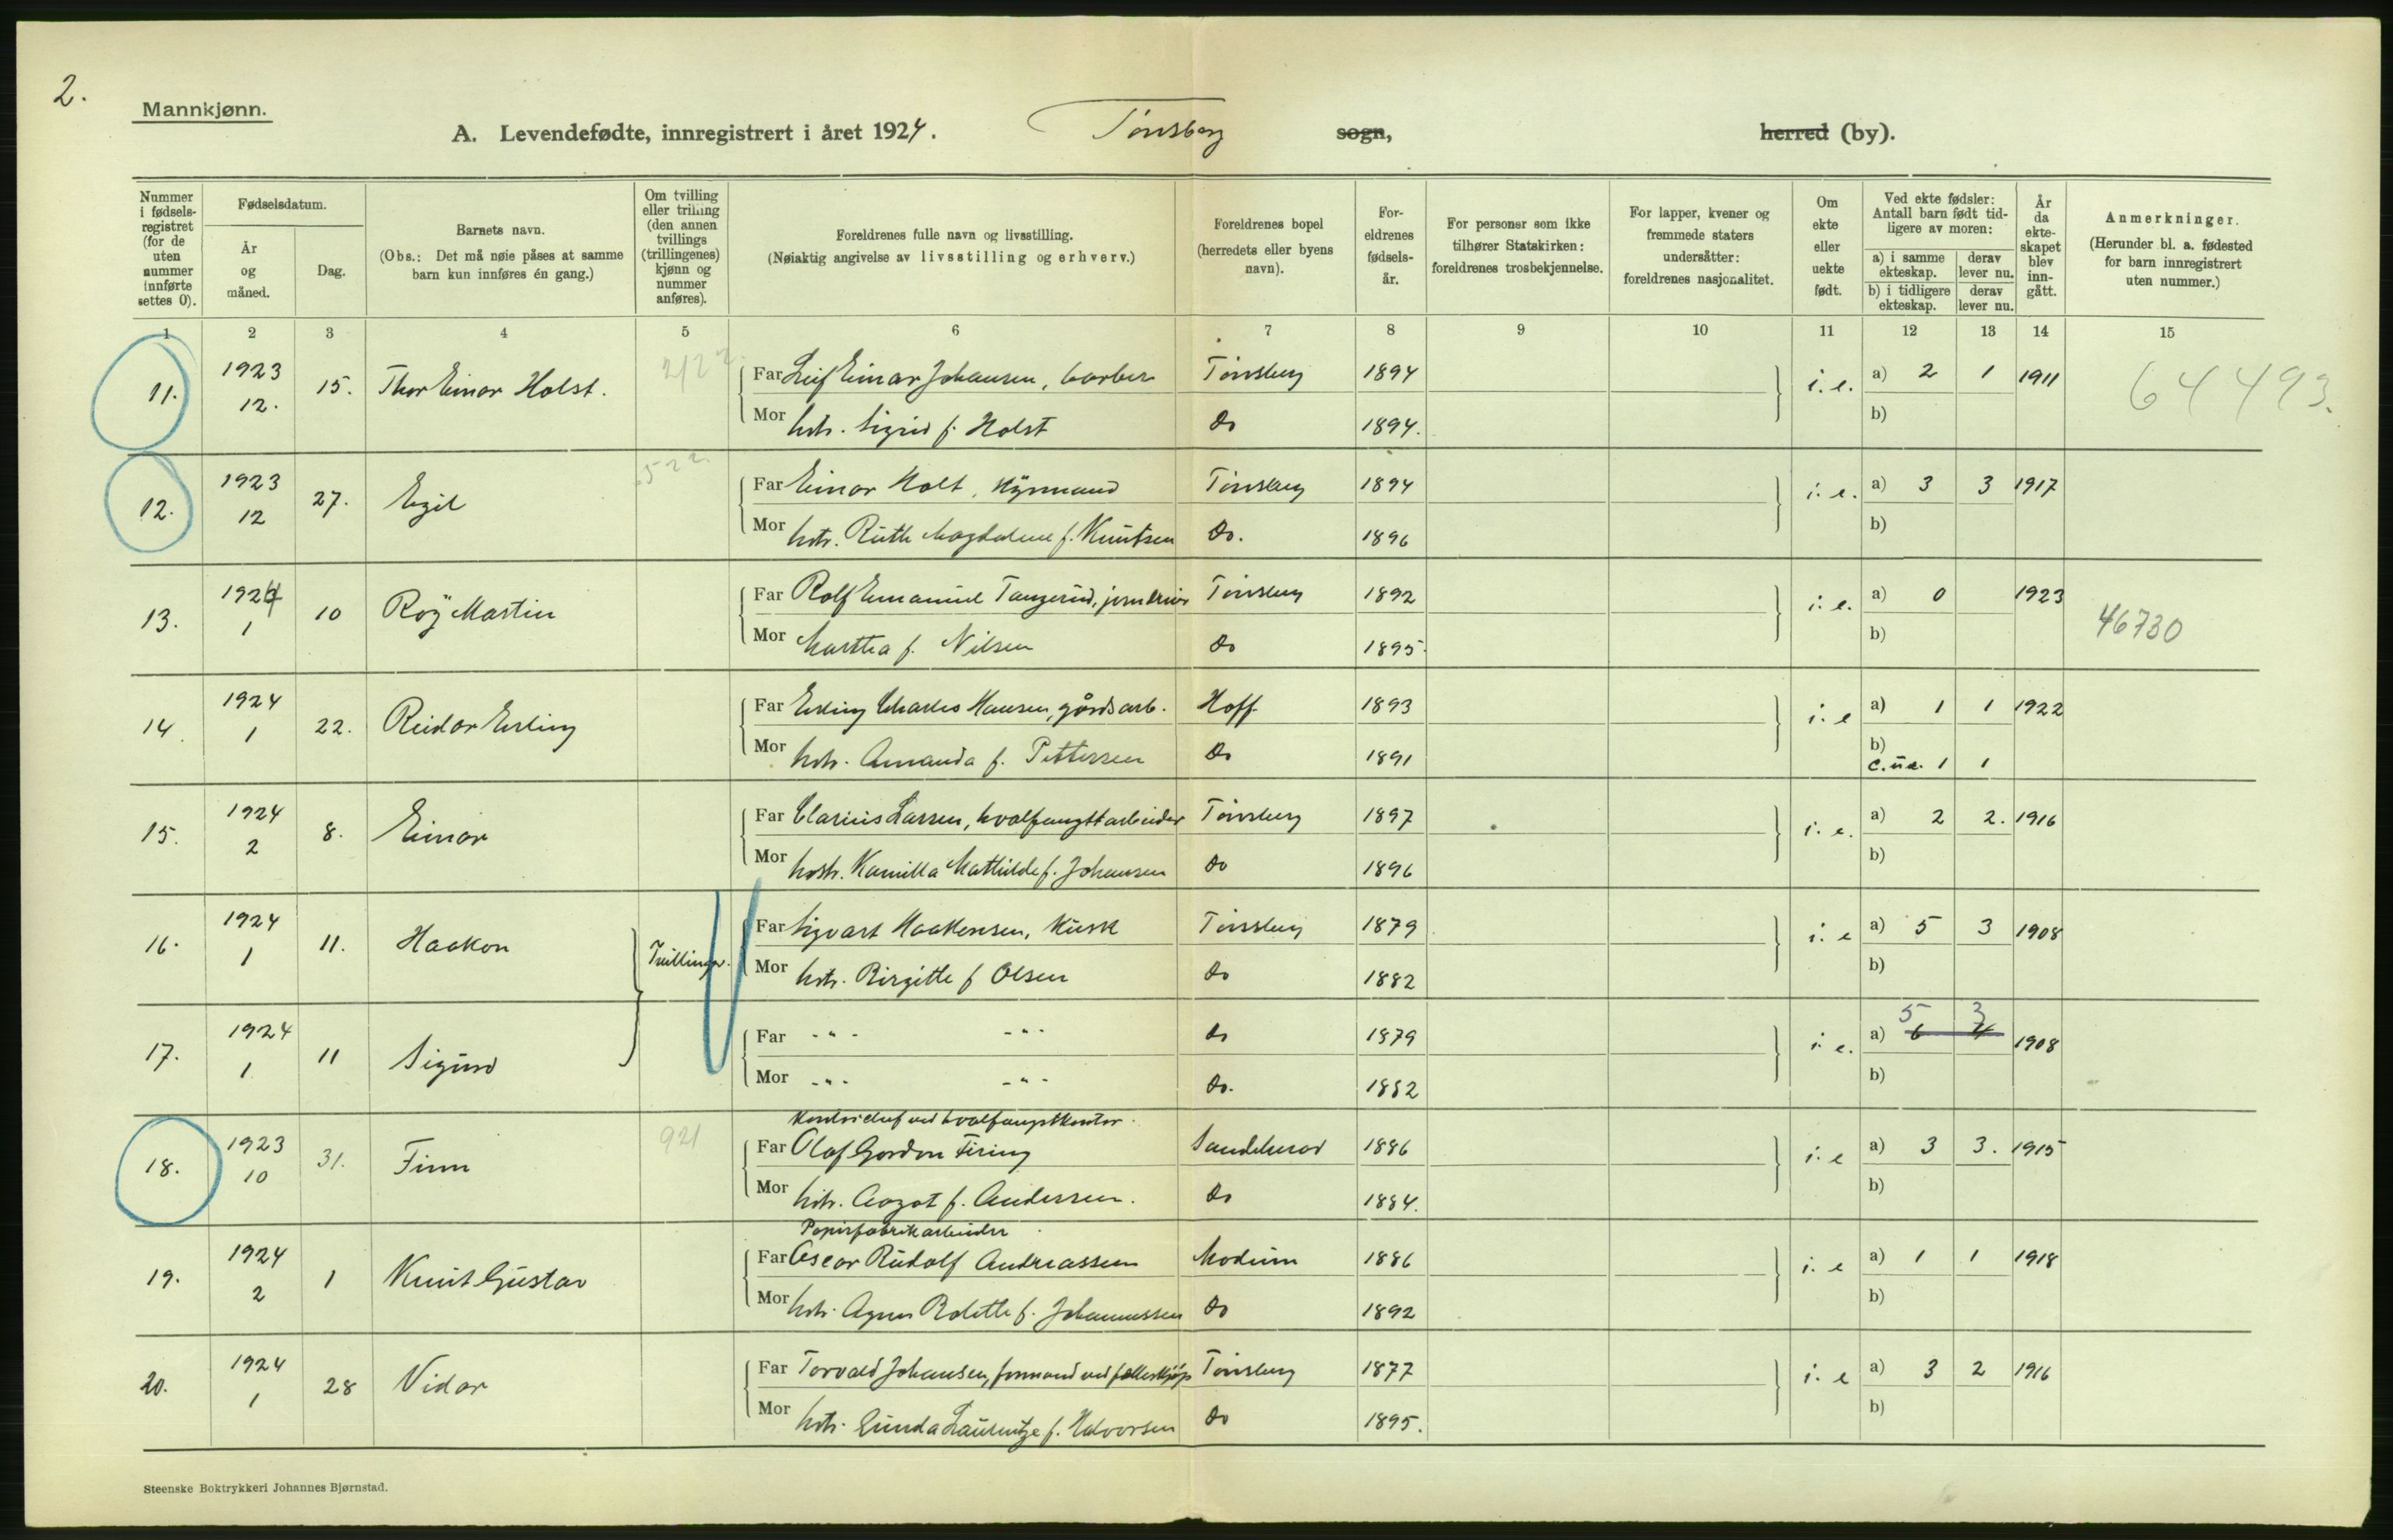 2.
Mannkjønn.
A. Levendefødte, innregistrert i året 1924. Tönsberg sogn, herred (by).
Nummer i fødsels-registret (for de uten nummer innførte settes 0).
Fødselsdatum.
År og måned.
Dag.
Barnets navn.
(Obs.: Det må nøie påses at samme barn kun innføres én gang.)
Om tvilling eller trilling (den annen tvillings (trillingenes) kjønn og nummer anføres).
Foreldrenes fulle navn og livsstilling.
(Nøiaktig angivelse av livsstilling og erhverv.)
Foreldrenes bopel (herredets eller byens navn).
For-eldrenes fødsels-år.
For personer som ikke tilhører Statskirken: foreldrenes trosbekjennelse.
For lapper, kvener og fremmede staters undersåtter: foreldrenes nasjonalitet.
Om ekte eller uekte født.
Ved ekte fødsler: Antall barn født tid-ligere av moren:
a) i samme ekteskap. derav lever nu.
b) i tidligere ekteskap. derav lever nu.
År da ekte-skapet blev inn-gått.
Anmerkninger.
(Herunder bl. a. fødested for barn innregistrert uten nummer.)
1 2 3 4 5 6 7 8 9 10 11 12 13 14 15
11. 1923 12. 15. Thor Einar Holst.
Far Leif Einar Johansen, barber Tönsberg 1894 i. e. a) 2 1 1911 64493.
Mor hstr. Sigrid f. Holst do 1894. b)
12. 1923 12 27. Egil 522
Far Einar Holt, Hyrmand Tönsberg 1894 i. e. a) 3 3 1917
Mor hstr. Ruth Magdalene f. Knutsen do. 1896 b)
13. 1924 1 10 Roy Martin
Far Rolf Emanuel Tangerud, jerndreier Tönsberg 1892 i. e. a) 0 1923 46730
Mor Martha f. Nilsen do 1895 b)
14. 1924 1 22. Reidar Erling
Far Erling Charles Hansen, gårdsarb. Hoff 1893 i. e a) 1 1 1922
Mor hstr. Amanda f. Pettersen do 1891 b)
c. ue. 1 1
15. 1924 2 8. Einar
Far Clarius Larsen, hvalfangstarbeider Tönsberg 1897 i. e. a) 2 2. 1916
Mor hustr. Kamilla Mathilde f. Johansen do 1896 b)
16. 1924 1 11. Haakon Tvillinger.
Far Sigvart Haakensen, Kusk Tönsberg 1879 i. e a) 5 3 1908
Mor hstr. Birgitte f Olsen do 1882 b)
5 3
17. 1924 1 11 Sigurd
Far - " - - " - do 1879 i. e. a) 6 4 1908
Mor - " - - " - do. 1882 b)
Kontorchef ved hvalfangstkontor.
18. 1923 10 31. Finn 921
Far Olaf Gordon Firing Sandeherad 1886 i. e a) 3 3. 1915
Mor hstr. Aagot f. Andersen. do 1884. b)
Papirfabrikarbeider
19. 1924 2 1 Knut Gustav
Far Oscar Rudolf Andreassen Modum 1886 i. e a) 1 1 1918
Mor hstr. Agnes Rolette f. Johannessen do 1892 b)
20. 1924 1 28 Vidar
Far Torvald Johansen, formand ved fælleskjøp Tönsberg 1877 i. e a) 3 2 1916
Mor hstr. Gunda Laurentze f. Halvorsen do 1895. b)
Steenske Boktrykkeri Johannes Bjørnstad.